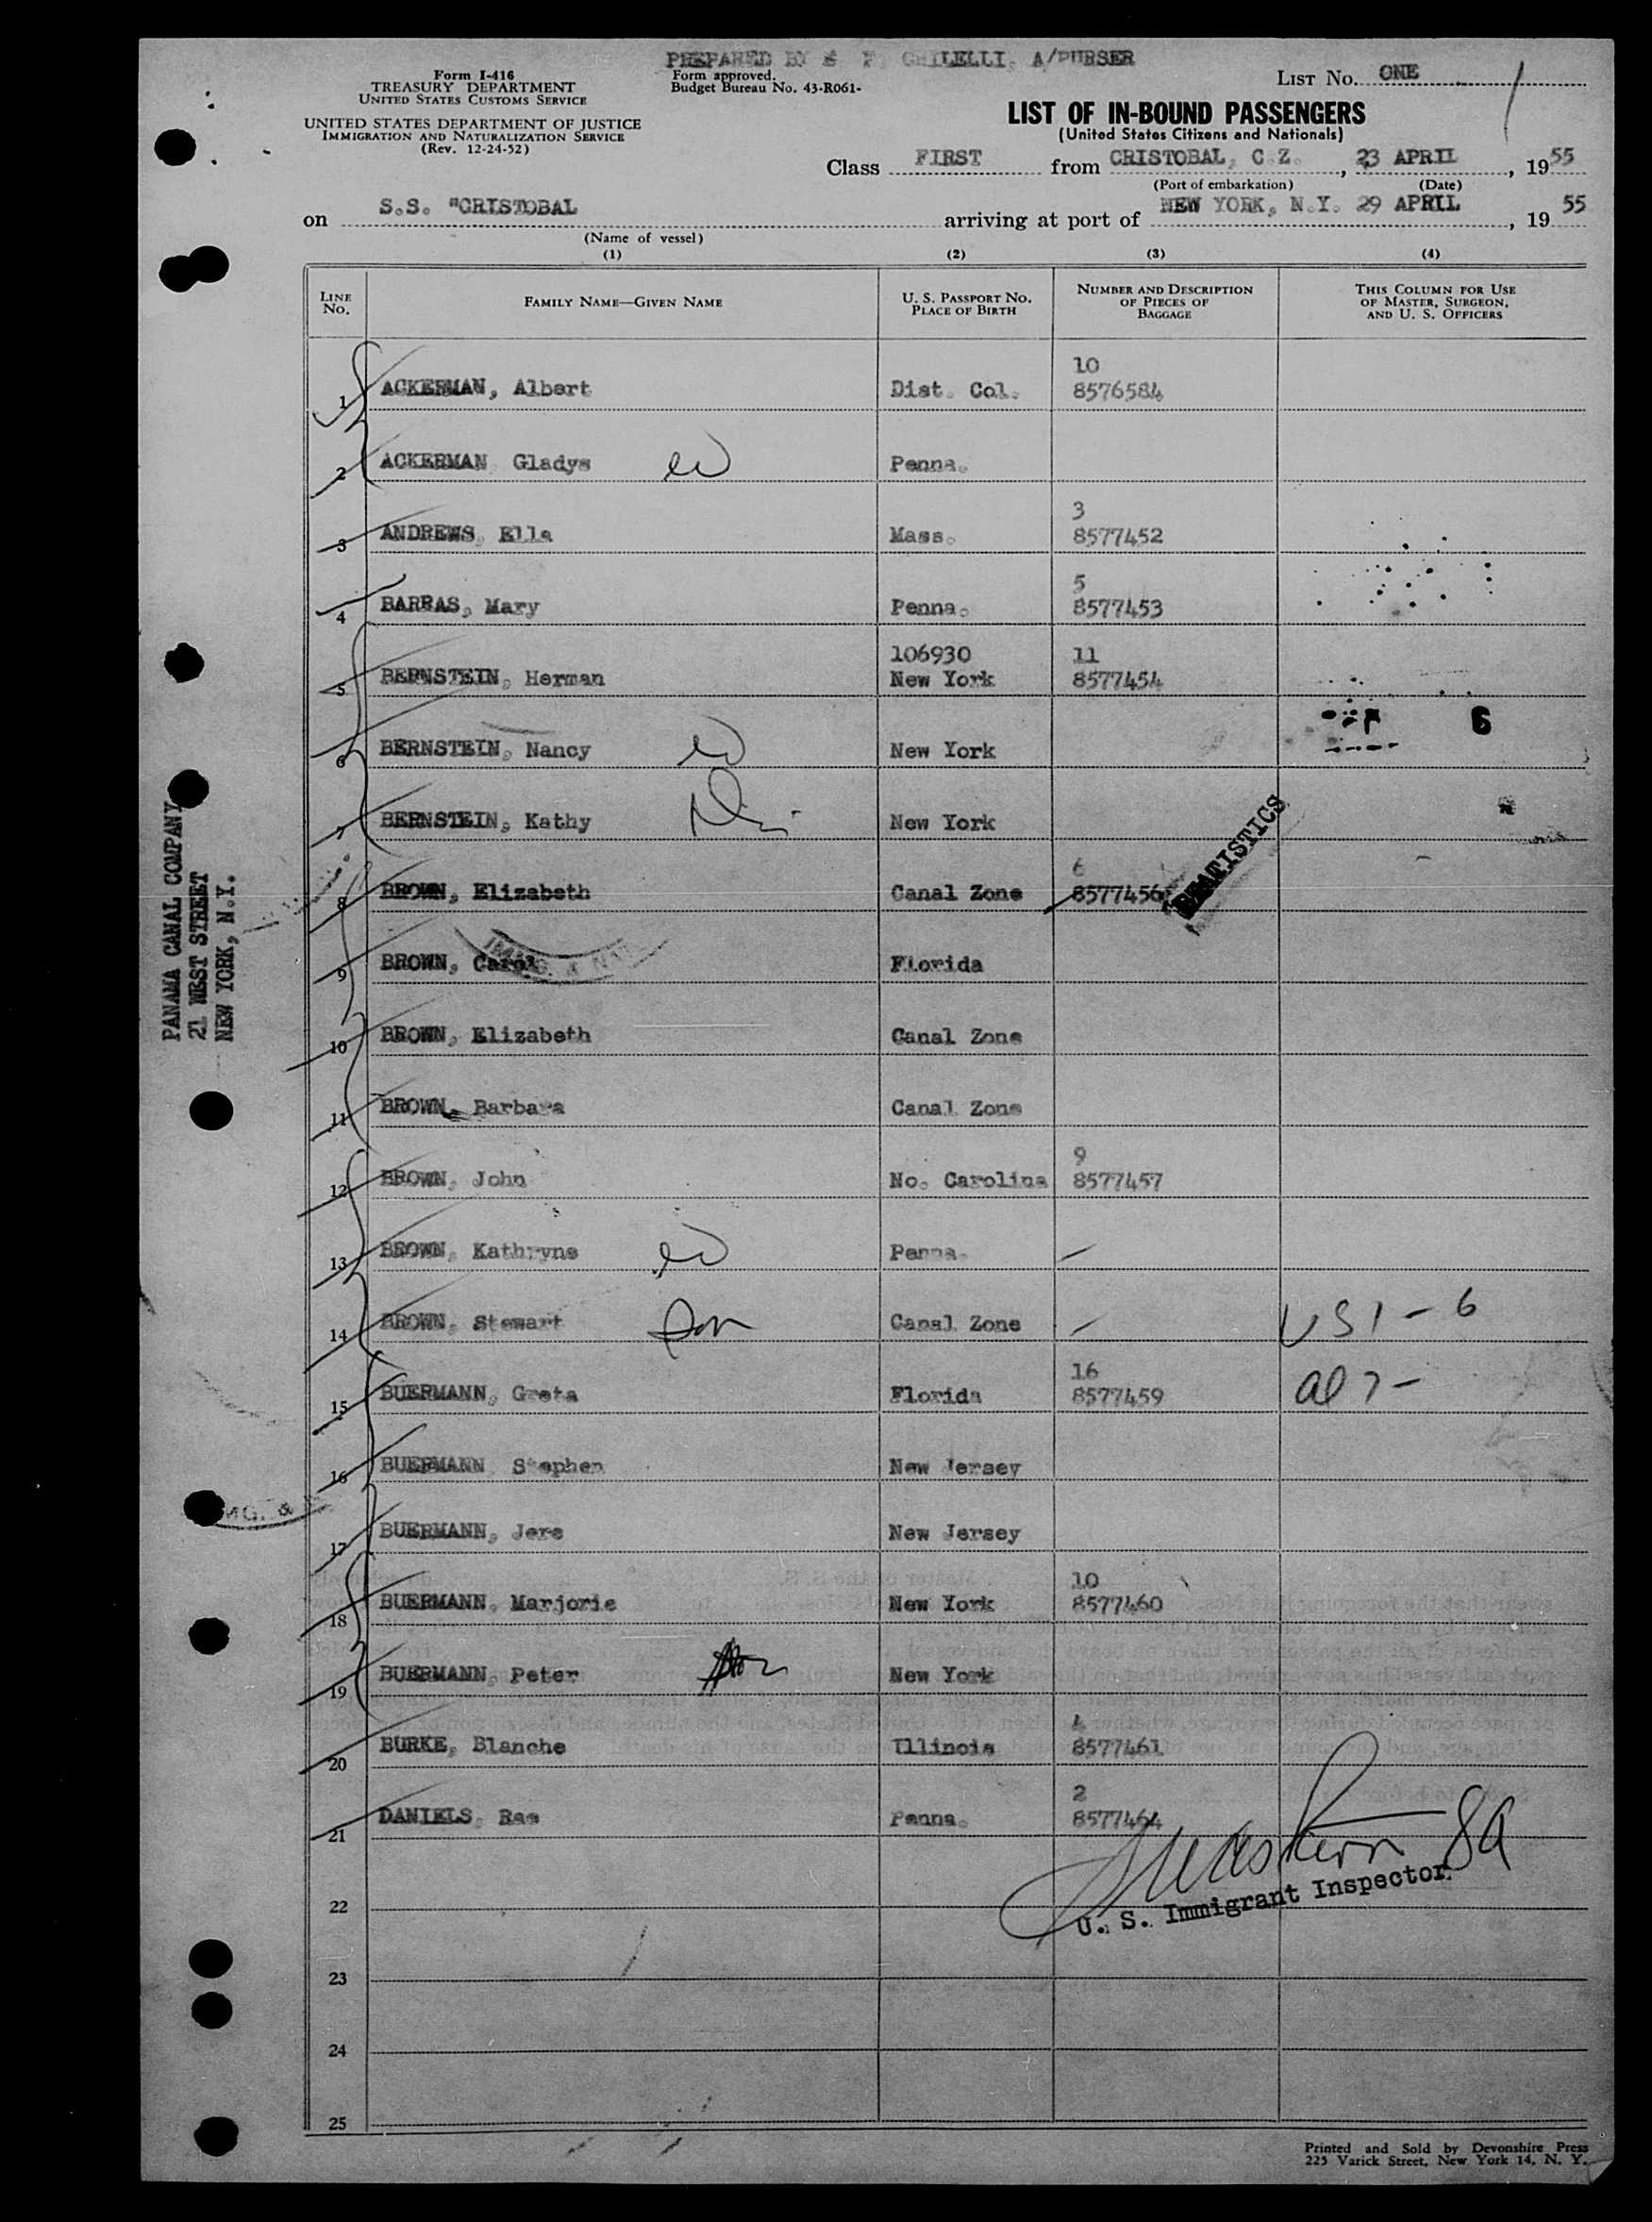 PREPARED BY A/PURSER
Form I-416
TREASURY DEPARTMENT
UNITED STATES CUSTOMS SERVICE
UNITED STATES DEPARTMENT OF JUSTICE
IMMIGRATION AND NATURALIZATION SERVICE
(Rev. 12-24-52)
Form approved.
Budget Bureau No. 43-R061-
LIST No. ONE
LIST OF IN-BOUND PASSENGERS
(United States Citizens and Nationals)
Class FIRST from CRISTOBAL, C.Z. , 23 APRIL , 19 55
(Port of embarkation) (Date)
on S.S. "CRISTOBAL arriving at port of NEW YORK, N.Y. 29 APRIL , 19 55
(Name of vessel)
(1) (2) (3) (4)
LINE No. FAMILY NAME—GIVEN NAME U. S. PASSPORT NO. PLACE OF BIRTH NUMBER AND DESCRIPTION OF PIECES OF BAGGAGE THIS COLUMN FOR USE OF MASTER, SURGEON, AND U. S. OFFICERS
10
1 ACKERMAN, Albert Dist. Col. 8576584
2 ACKERMAN Gladys Penna.
3
3 ANDREWS, Ella Mass. 8577452
5
4 BARRAS, Mary Penna. 8577453
106930 11
5 BERNSTEIN, Herman New York 8577454
6
6 BERNSTEIN, Nancy New York
7 BERNSTEIN, Kathy New York
STATISTICS
6
8 BROWN, Elizabeth Canal Zone 8577456
9 BROWN, Carol Florida
10 BROWN, Elizabeth Canal Zone
11 BROWN, Barbara Canal Zone
9
12 BROWN, John No. Carolina 8577457
13 BROWN, Kathryne Penna.
14 BROWN, Stewart son Canal Zone USI - 6
16
15 BUERMANN, Greta Florida 8577459
16 BUERMANN Stephen New Jersey
17 BUERMANN, Jere New Jersey
10
18 BUERMANN, Marjorie New York 8577460
19 BUERMANN, Peter New York
4
20 BURKE, Blanche Illinois 8577461
2
21 DANIELS, Rae Penna. 8577464
22
U. S. Immigrant Inspector
23
24
25
PANAMA CANAL COMPANY
21 WEST STREET
NEW YORK, N.Y.
Printed and Sold by Devonshire Press
225 Varick Street, New York 14, N. Y.